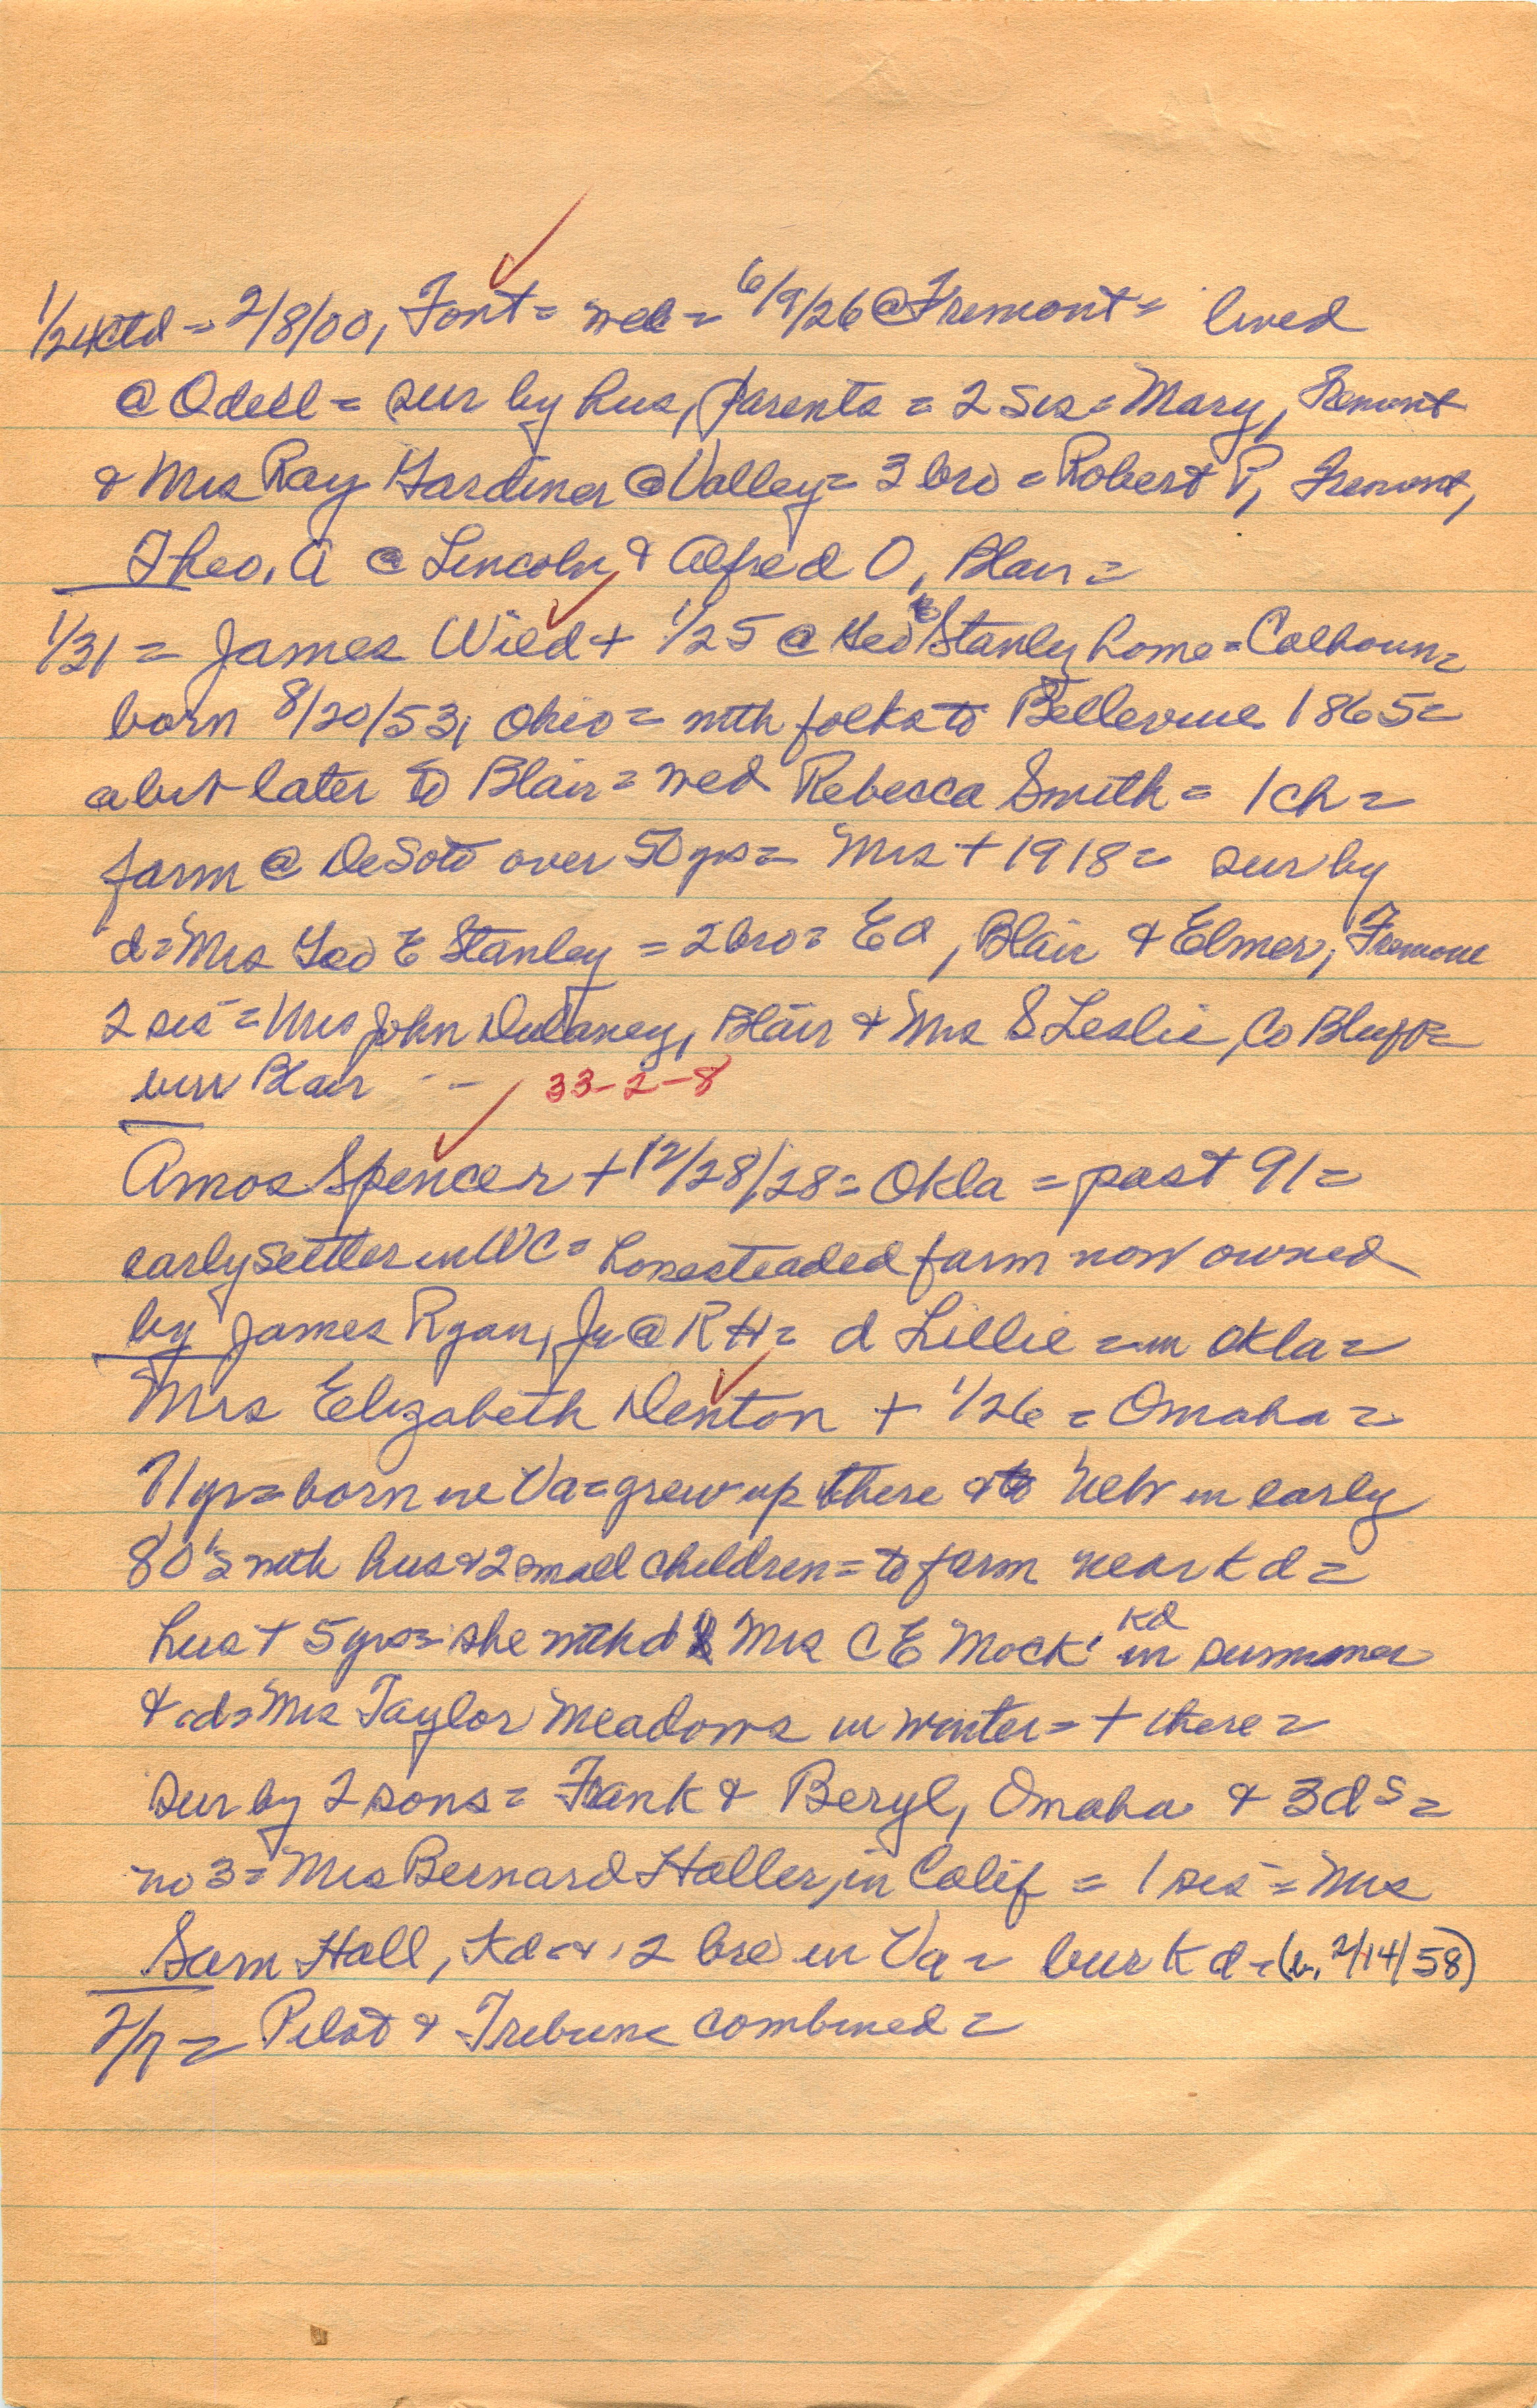 1/24ctd = 2/8/00, Font = wed = 6/9/26 @ Fremont = lived
@ Odell = sur by hus, parents = 2 sis = Mary, Fremont
& Mrs Ray Gardiner @ Valley = 3 bro = Robert P, Fremont,
Theo. A @ Lincoln & Alfred O, Blair =
1/31 = James Wild + 1/25 @ Geo E Stanley home = Calhoun =
born 8/20/53, Ohio = with folks to Bellevue 1865 =
a bit later to Blair = wed Rebecca Smith = 1 ch =
farm @ DeSoto over 50 yrs = Mrs + 1918 = sur by
d = Mrs Geo E Stanley = 2 bro = Ed, Blair & Elmer, Fremont
2 sis = Mrs John Dulaney, Blair & Mrs S Leslie, Co Bluffs =
bur Blair -- 33-2-8
Amos Spencer + 12/28/28 = Okla = past 91 =
early settler in WC = homesteaded farm now owned
by James Ryan, Jr @ R H = d Lillie = in Okla =
Mrs Elizabeth Denton + 1/26 = Omaha =
71 yrs = born in Va = grew up there & to Neb in early
80's with hus & 2 small children = to farm near K d =
hus + 5 yrs = she with d Mrs C E Mock' Kd in summer
& d = Mrs Taylor Meadows in winter = + there =
sur by 2 sons = Frank & Beryl, Omaha & 3 ds =
no 3 = Mrs Bernard Haller, in Calif = 1 sis = Mrs
Sam Hall, Kd & 2 bro in Va = bur K d = (b. 2/14/58)
2/7 = Pilot & Tribune combined =